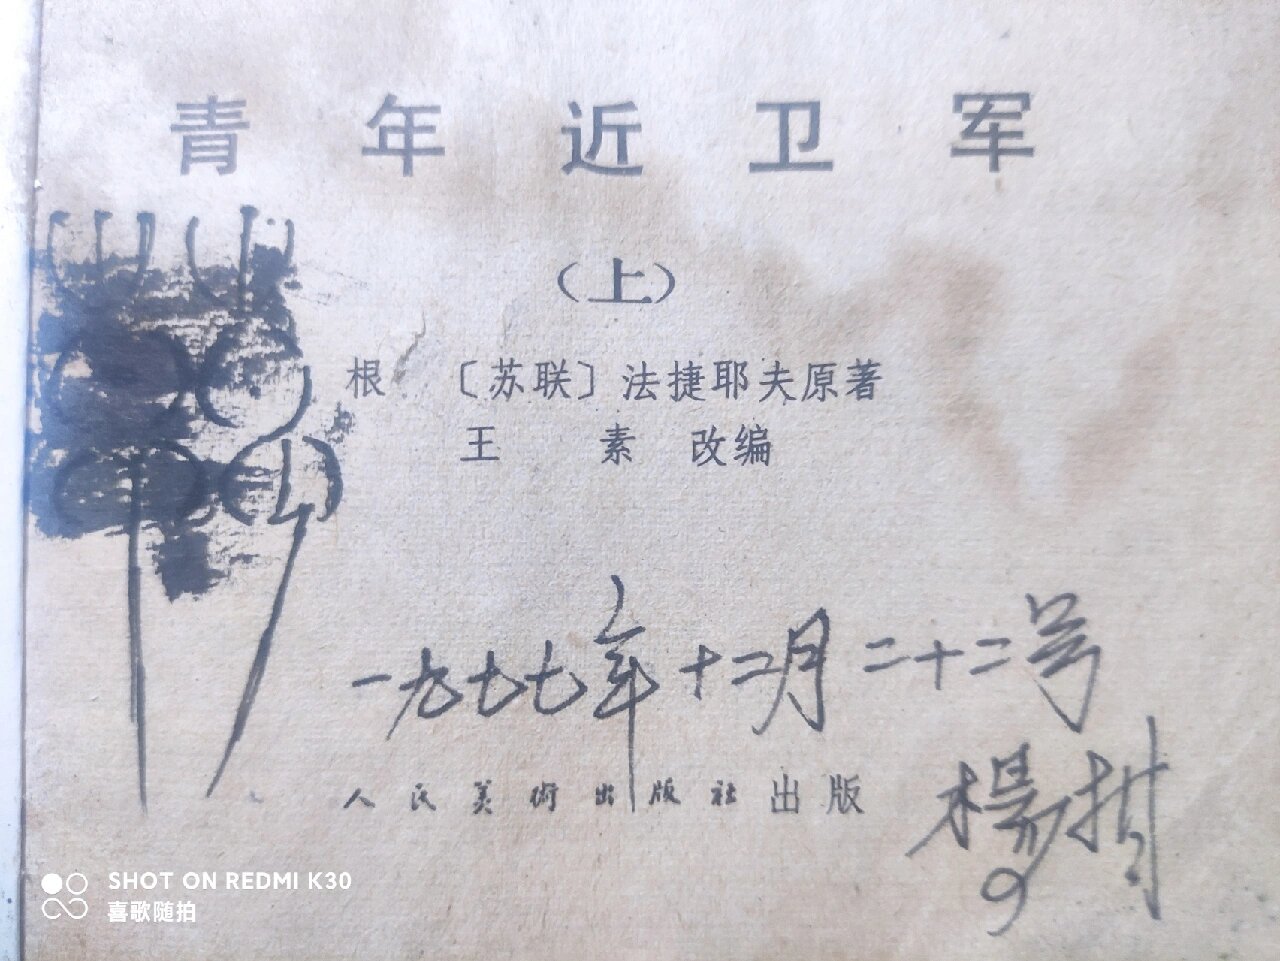 青年近卫军
（上）
根 〔苏联〕法捷耶夫原著
王 素 改编
一九七七年十二月二十二号
人民美术出版社出版
楊
SHOT ON REDMI K30
喜歌随拍